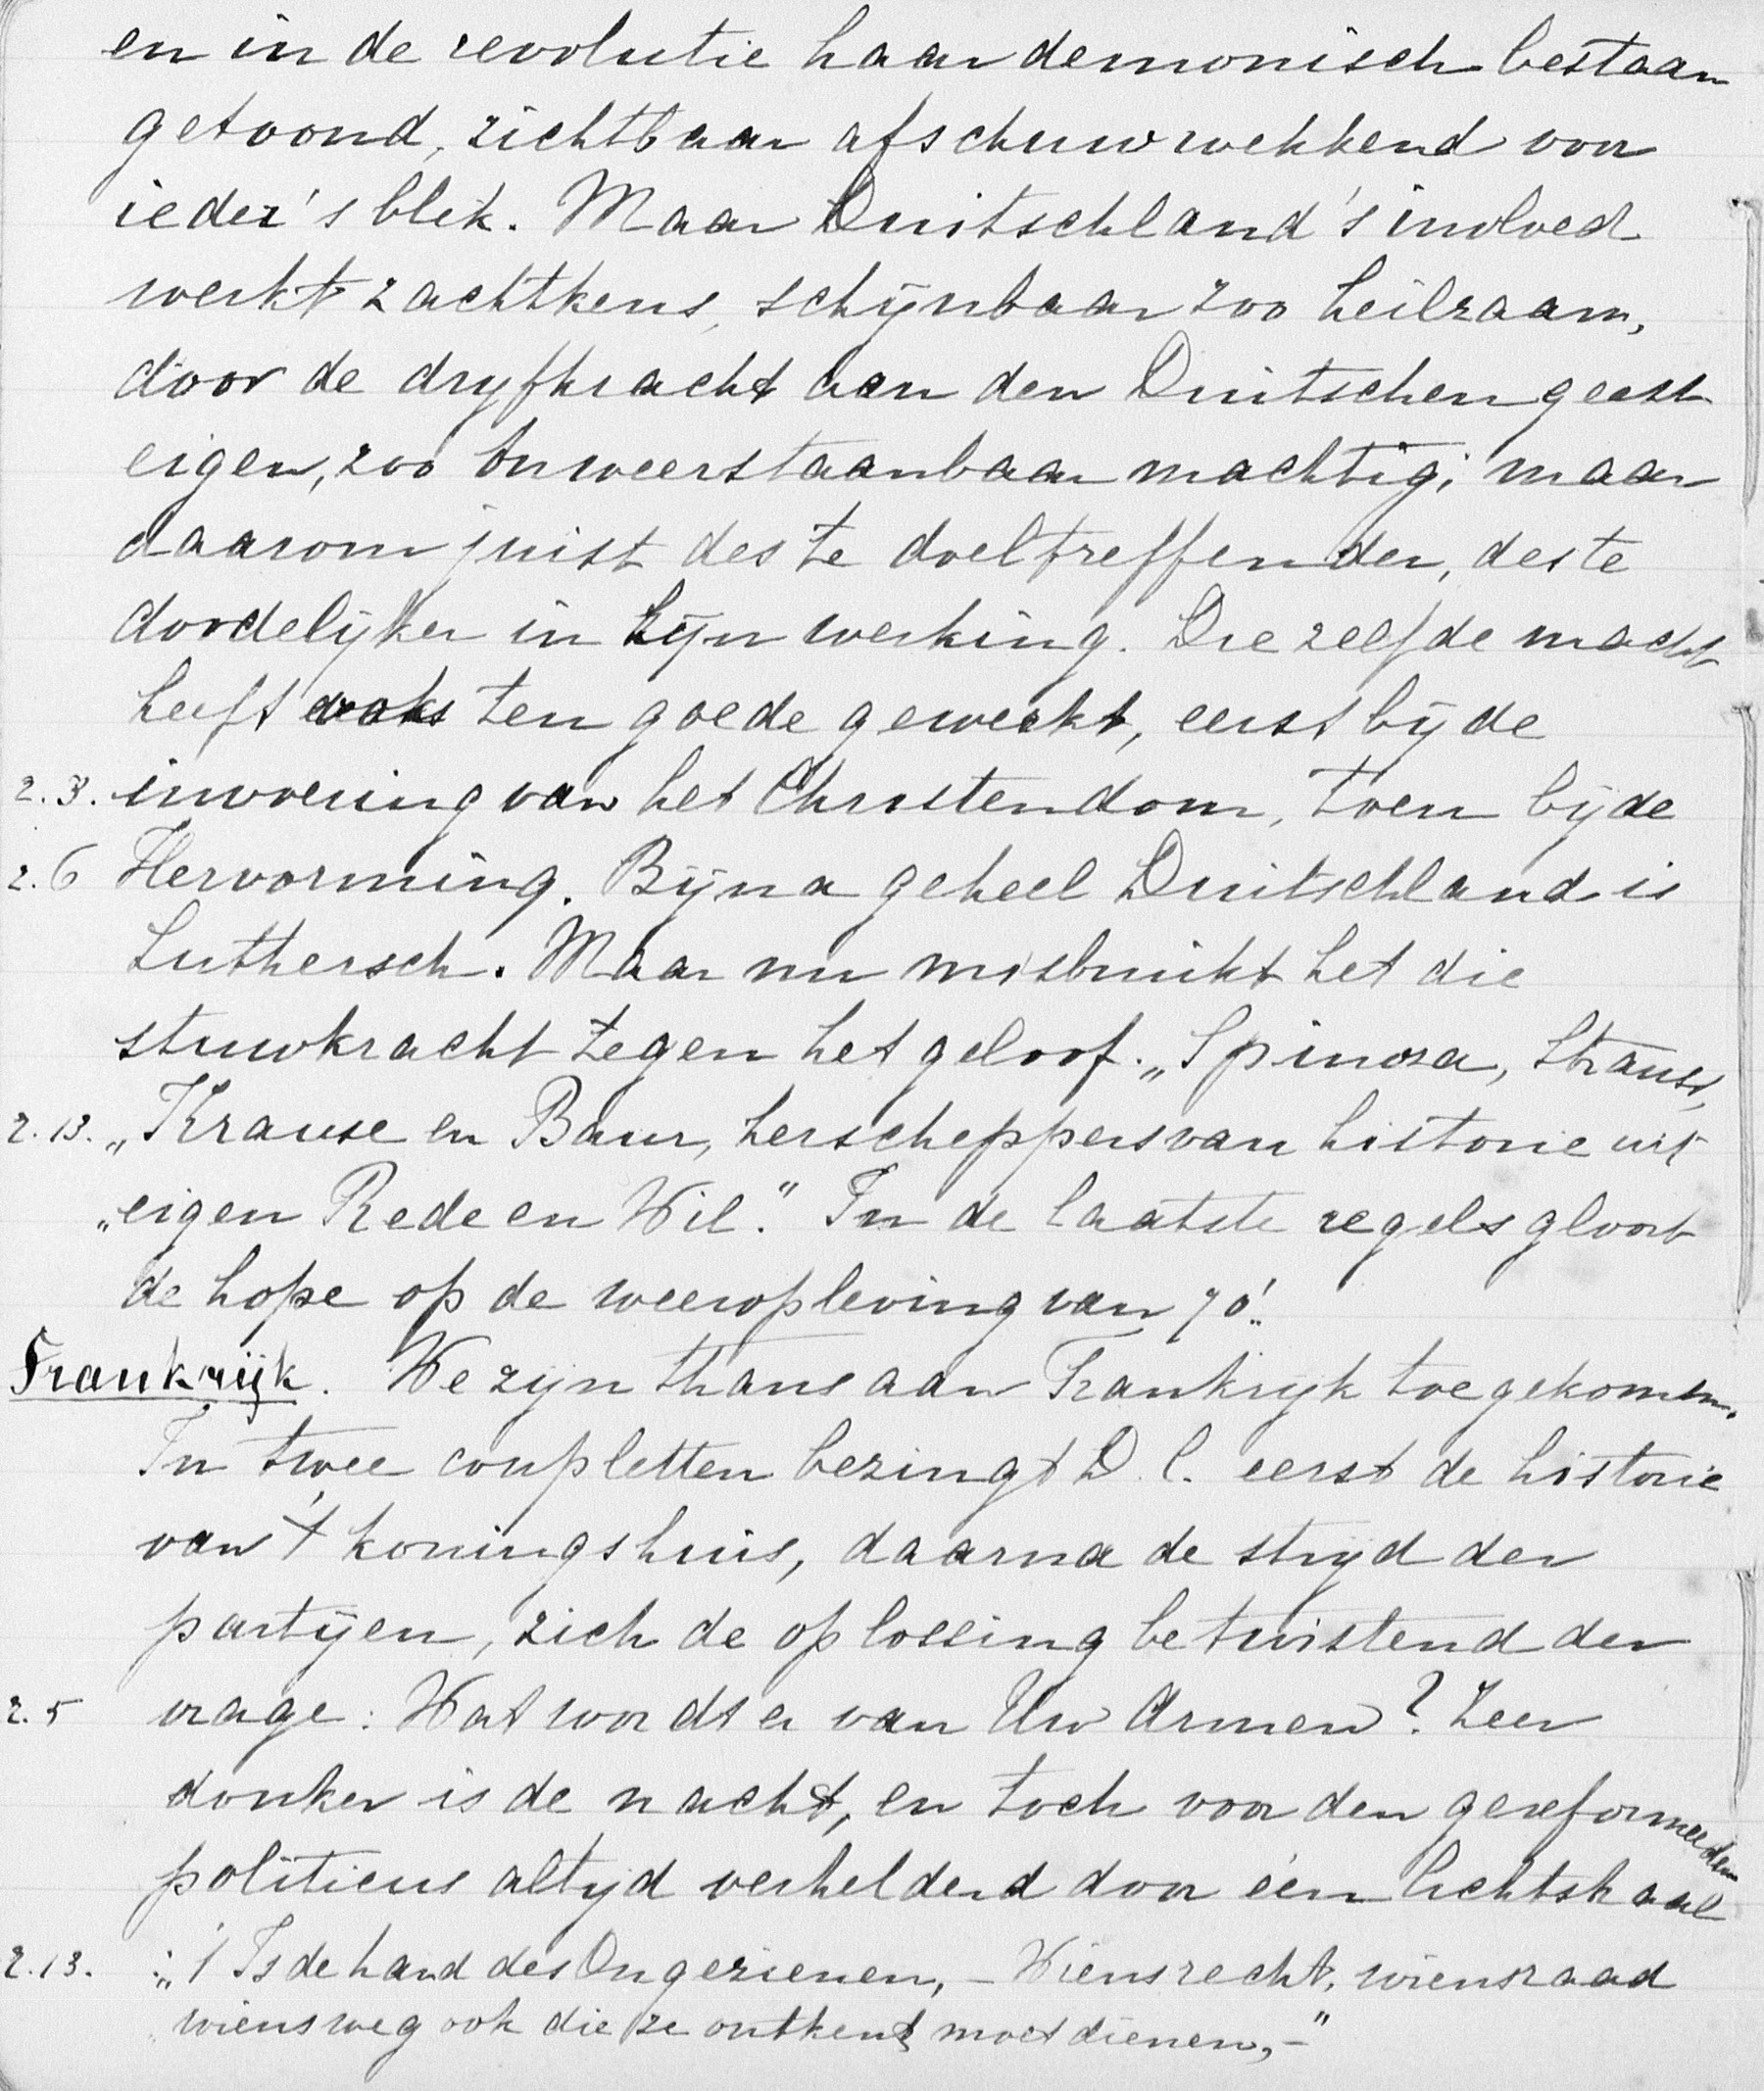 en in de revolutie haar demonisch bestaan
getoond, zichtbaar afschuwwekkend voor
ieder's blik. Maar Duitschland's invloed
werkt zachtkens, schijnbaar zoo heilzaam,
door de dryfkracht aan den Duitschen geest
eigen, zoo onweerstaanbaar machtig; maar
daarom juist des te doeltreffender, des te
doodelijker in zijn werking. Die zelfde macht
heeft ten goede gewerkt, eerst bij de
2.3. invoering van het Christendom, toen bij de
2.6 Hervorming. Bijna geheel Duitschland is
Luthersch. Maar nu misbruikt het die
stuwkracht tegen het geloof. „Spinoza, Strauss,
2.13. „Krause en Baur, herscheppers van historie uit
„eigen Rede en Wil." In de laatste regels gloort
de hope op de weeropleving van 70!.
Frankrijk. We zijn thans aan Frankrijk toegekomen.
In twee coupletten bezingt D.C. eerst de historie
van 't koningshuis, daarna de strijd der
partijen, zich de oplossing betwistend der
2.5 vrage: Wat wordt er van Uw Armen? Zeer
donker is de nacht, en toch voor den gereformeerden
politicus altyd verhelderd door één lichtstraal
2.13. :„'t Is de hand des Ongezienen, – Wiens recht, wiens raad
wiens weg ook die ze ontkent moet dienen, –"